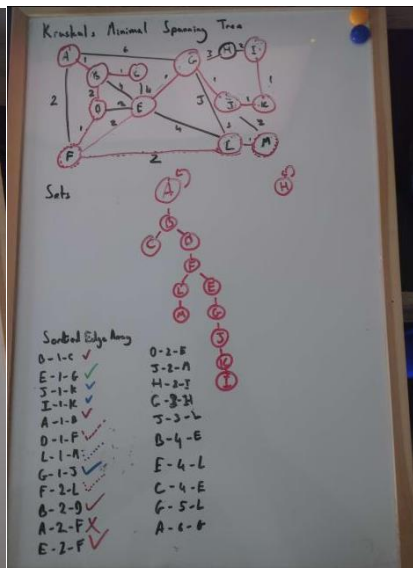 Kruskals Minimal Spanning Tree
6
A
G
3
H
2
I
1
B
1
C
1
2
4
1
1
2
D
2
E
J
1
K
1
2
4
2
F
L
M
2
Sets
A
H
B
C
D
E
L
E
M
G
J
K
I
Sorted Edge Array
B-1-C
E-1-G
J-1-K
I-1-K
A-1-B
D-1-F
L-1-M
G-1-J
F-2-L
B-2-D
A-2-F X
E-2-F
D-2-E
J-2-M
H-2-I
G-3-H
J-3-L
B-4-E
E-4-L
C-4-E
G-5-L
A-6-G